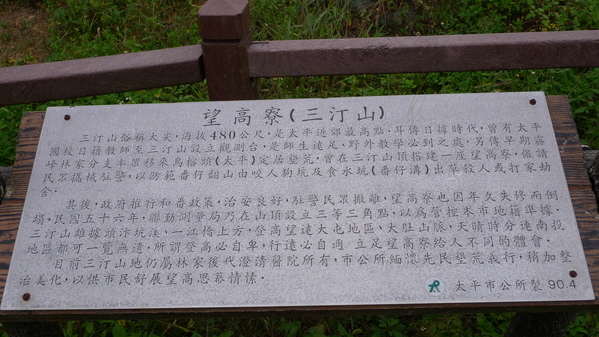 望高寮(三汀山)
三汀山俗稱大尖，海拔480公尺，是太平近郊最高點。耳傳日據時代，曾有太平
國校日籍教師至三汀山設立觀測台，是師生遠足、野外教學必到之處。另傳早期霧
峰林家分支率眾移來鳥榕頭(太平)定居墾荒，曾在三汀山頂搭建一座望高寮，僱請
民眾攜械駐警，以防範番仔翻山由咬人狗坑及食水坑(番仔溝)出草殺人或打家劫
舍。
其後，政府推行和番政策，治安良好，駐警民眾撤離，望高寮也因年久失修而倒
塌，民國五十六年，聯勤測量局乃在山頂設立三等三角點，以為管控本市地籍準據。
三汀山雄據頭汴坑溪、一江橋上方，登高望遠大屯地區、大肚山脈，天晴時分連南投
地區都可一覽無遺。所謂登高必自卑，行遠必自邇 立足望高寮給人不同的體會。
目前三汀山地仍屬林家後代澄清醫院所有，市公所緬懷先民墾荒義行，稍加整
治美化，以供市民舒展望高思慕情愫。
太平市公所製 90.4